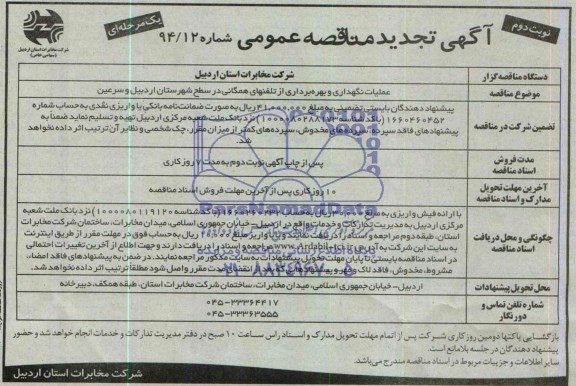 نوبت دوم
آگهی تجدید مناقصه عمومی شماره ۹۴/۱۲
یک مرحله‌ای
شرکت مخابرات استان اردبیل
(سهامی خاص)
دستگاه مناقصه‌گزار
شرکت مخابرات استان اردبیل
موضوع مناقصه
عملیات نگهداری و بهره‌برداری از تلفنهای همگانی در سطح شهرستان اردبیل و سرعین
تضمین شرکت در مناقصه
پیشنهاد دهندگان بایستی تضمینی به مبلغ ۴۱،۰۰۰،۰۰۰ ریال به صورت ضمانت‌نامه بانکی یا واریزی نقدی به حساب شماره
۱۶۶۰۴۶۰۴۵۲ (با کد شناسه ۱۰۰۰۰۰۸۰۲۸۸۱۷۳) نزد بانک ملت شعبه مرکزی اردبیل تهیه و تسلیم نماید ضمناً به
پیشنهادهای فاقد سپرده، سپرده‌های مخدوش، سپرده‌های کمتر از میزان مقرر، چک شخصی و نظایر آن ترتیب اثر داده نخواهد
شد.
مدت فروش
اسناد مناقصه
پس از چاپ آگهی نوبت دوم به مدت ۷ روز کاری
آخرین مهلت تحویل
مدارک و اسناد مناقصه
۱۰ روز کاری پس از آخرین مهلت فروش اسناد مناقصه
چگونگی و محل دریافت
اسناد مناقصه
با ارائه فیش واریزی به مبلغ ریال به حساب (با کد شناسه ۱۰۰۰۰۰۸۰۱۱۹۱۲۰) نزد بانک ملت شعبه
مرکزی اردبیل به مدیریت تدارکات و خدمات واقع در اردبیل- خیابان جمهوری اسلامی، میدان مخابرات، ساختمان شرکت مخابرات
استان، طبقه دوم مراجعه و اسناد را دریافت نمایند و یا با واریز مبلغ ریال به حساب فوق در مهلت مقرر از طریق اینترنت
به سایت این شرکت به آدرس مراجعه و اسناد را دریافت دارند و جهت اطلاع از آخرین تغییرات احتمالی
در اسناد مناقصه بایستی تا پایان مهلت تحویل پیشنهادات به سایت مذکور مراجعه نمایند. در ضمن به پیشنهادهای فاقد امضاء،
مشروط، مخدوش، فاقد لاک و مهر و پیشنهادهایی که بعد از انقضای مدت مقرر واصل شود مطلقاً ترتیب اثر داده نخواهد شد.
محل تحویل پیشنهادات
اردبیل- خیابان جمهوری اسلامی، میدان مخابرات، ساختمان شرکت مخابرات استان، طبقه همکف، دبیرخانه
شماره تلفن تماس و
دورنگار
۰۴۵-۳۳۳۶۴۴۱۷
۰۴۵-۳۳۳۶۳۵۵۵
بازگشایی پاکتها دومین روز کاری شرکت پس از اتمام مهلت تحویل مدارک و اسناد راس ساعت ۱۰ صبح در دفتر مدیریت تدارکات و خدمات انجام خواهد شد و حضور
پیشنهاد دهندگان در جلسه بلامانع است.
سایر اطلاعات و جزییات مربوط در اسناد مناقصه مندرج می‌باشد.
شرکت مخابرات استان اردبیل